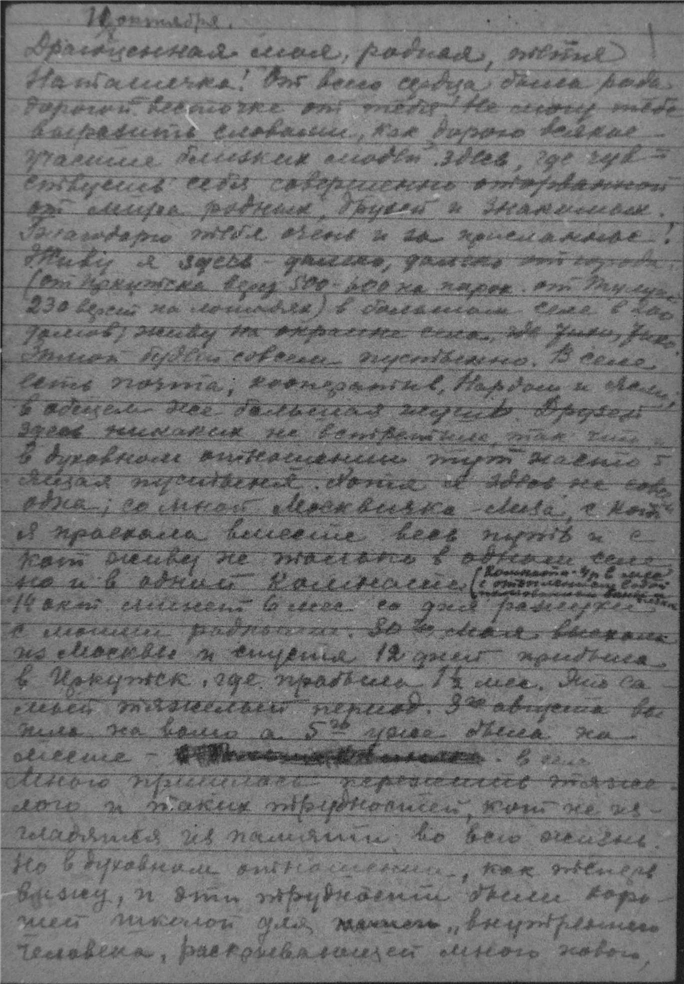 октября.
Драгоценная моя, родная, тетя
Наташечка! От всего сердца была рада
дорогой весточке от тебя! Не могу тебе
выразить словами, как дорого всякое
участие близких людей здесь, где чув-
ствуешь себя совершенно оторванной
от мира родных, друзей и знакомых.
Благодарю тебя очень и за присланное!
Живу я здесь - далеко, далеко от города
(от Иркутска верст 500-600 на парох. от
230 верст на лошадях) в большом селе в 200
домов, живу на окраине села, где
зимой будет совсем пустынно. В селе
есть почта, кооператив, Нардом и Ясли,
в общем же большая глушь Друзей
здесь никаких не встретили, так что
в духовном отношении тут насто-
ящая пустыня. Хотя я здесь не совсем
одна; со мной Москвичка - Лиза, с кот
я проехала вместе весь путь и с
кот живу не только в одном селе
но и в одной комнате (
14 окт минет 6 мес. со дня разлуки
с моими родными. 30го Мая выехали
из Москвы и спустя 12 дней прибыла
в Иркутск, где пробыла 1½ мес. Это са-
мый тяжелый период. 3го августа вы-
шла на волю а 5го уже была на
месте - в селе
Много пришлось пережить тяже-
лого и таких трудностей, кот не из-
гладятся из памяти во всю жизнь.
Но в духовном отношении, как теперь
вижу, и эти трудности были хоро-
шей школой для „внутреннего
человека, раскрывающей много нового,